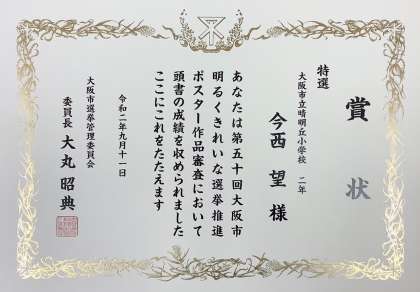 賞状
特選
大阪市立晴明丘小学校 二年
今西 望 様
あなたは第五十回大阪市
明るくきれいな選挙推進
ポスター作品審査において
頭書の成績を収められました
ここにこれをたたえます
令和二年九月十一日
大阪市選挙管理委員会
委員長 大丸昭典